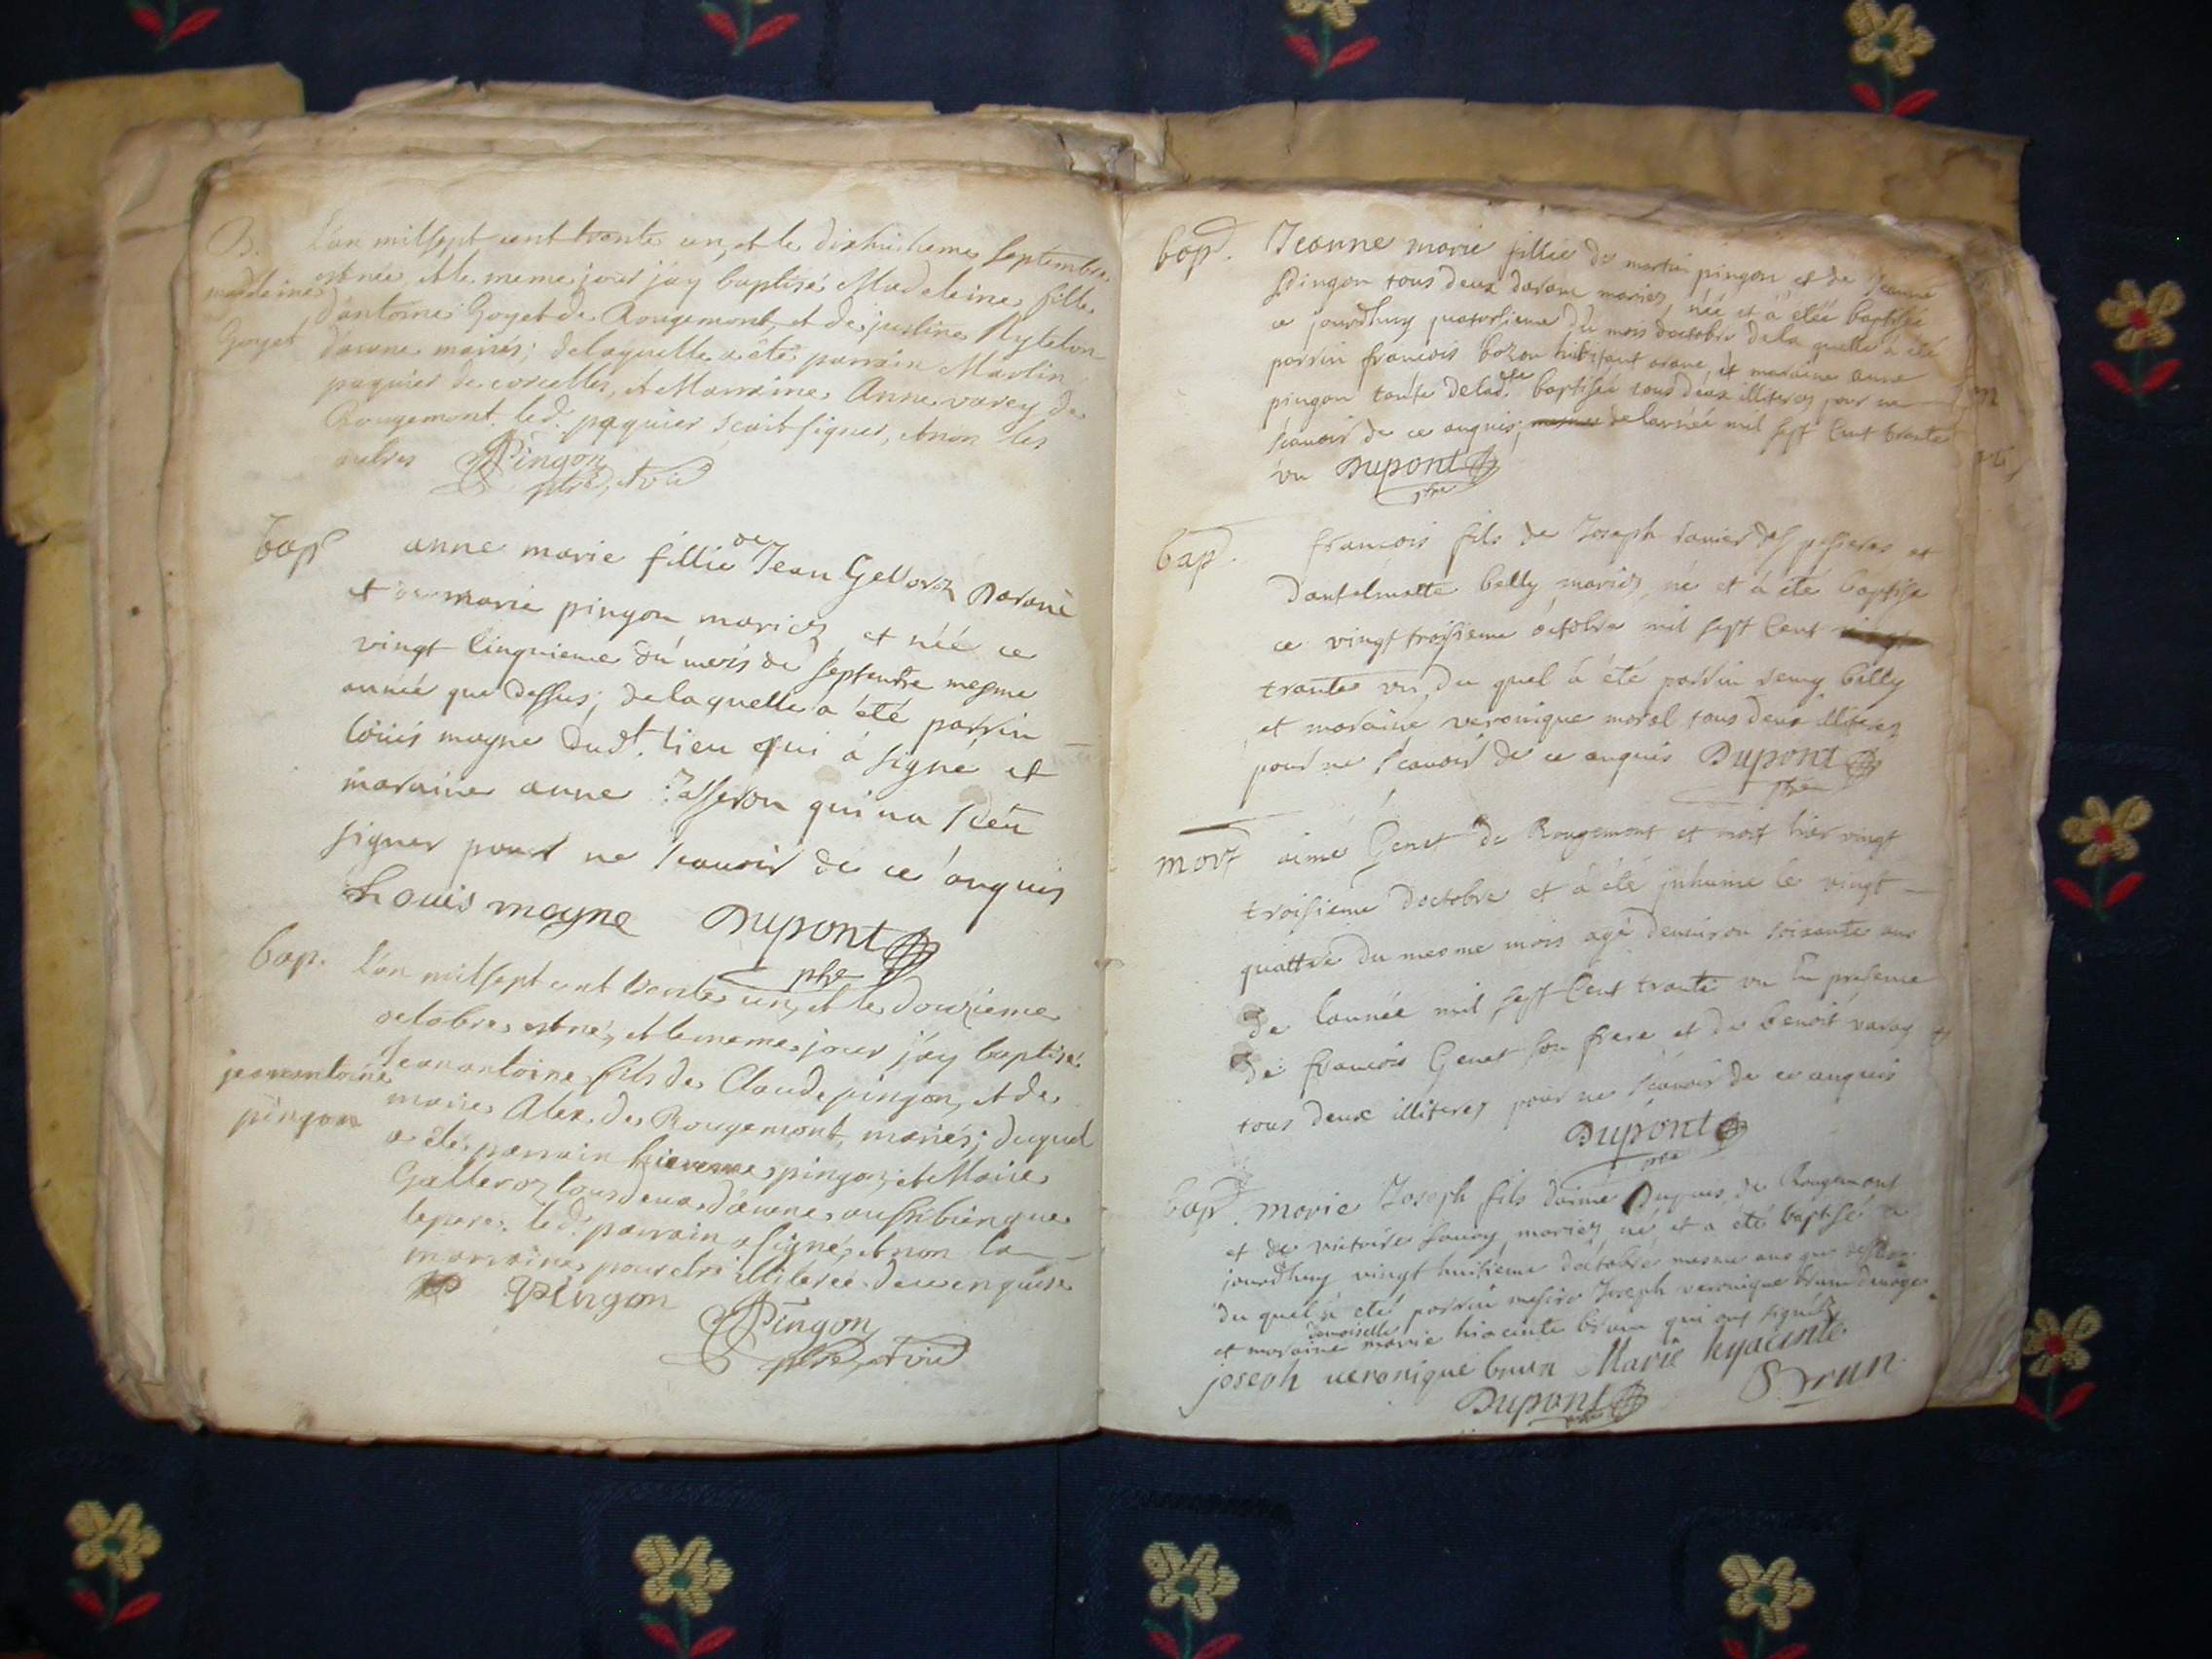 B.
madeleine
Goyet
L'an milsept cent trente un, et le dixhuitieme septembre
est née, et le meme jour j'ay baptisé Madeleine fille
d'antoine Goyet de Rougemont, et de justine Rytelon
d'arane mariés; de laquelle a été parrain Martin
paquier de corcelles, et Marraine Anne varey de
Rougemont. led. paquier scait signer, et non les
autres Pingon
ptre, et vic
bap anne marie fillie de Jean Gelloroz Darane
et de marie pingon mariez et néé ce
vingt cinquieme du mois de septembre mesme
année que dessus; de laquelle a été parrin
loüis moyne dud.t lieu qui à signé et
maraine anne qui na sceu
signer pour ne scauoir de ce enquis
Louis moyne Dupont
ptre
bap.
jeanantoine
pingon
L'an milsept cent trente un, et le douzieme
octobre est né, et le meme jour j'ay baptisé
Jeanantoine fils de Claude pingon, et de
marie Alex de Rougemont, mariés; duquel
a été parrain hierenne pingon, et Marie
Galleroz tous deux d'arane aussibien que
le pere. led. parrain a signé, et non la
marraine pour etre illiterée de ce enquise
Pingon
Pingon
ptre, et vic
bap. Jeanne marie fillie de martin pingon et de Jeanne
Pingon tous deux darane mariez, néé et à étéé baptisé
ce jourdhuy quatorsieme du mois doctobre de la quelle à été
parrin francois bozon habitant arane, et maraine anne
pingon tante de lad.te baptiséé tous deux illiteres pour ne
scauoir de ce anquis; de lannéé mil sept cent trante
vn Dupont
ptre
bap. francois fils de Joseph ravier des pesieres et
dantelmette billy mariez, né et à été baptisé
ce vingt troisieme octobre mil sept cent
trante vn, du quel à été parrin remy billy
et maraine veronique morel tous deux illiteres
pour ne scauoir de ce anquis Dupont
ptre
mort aimé Genet de Rougemont et mort hier vingt
troisieme doctobre et à été inhumé le vingt
quattre du mesme mois agé denuiron soixante ans
de lannéé mil sept cent trante vn En presence
de francois Genet son frere et de benoit varay
tous deux illiteres pour ne scauoir de ce anquis
Dupont
ptre
bap. marie Joseph fils daimé Dupuis de Rougemont
et de victoire Sauoy mariez, né et a été baptisé ce
jourdhuy vingt huitieme doctobre mesme ans que dessus
du quel à été parrin mesire Joseph veronique brun
et maraine demoiselle marie hiacinte brun qui ont signéz
joseph ueronique brun Marie hyacinte
Dupont Brun
ptre